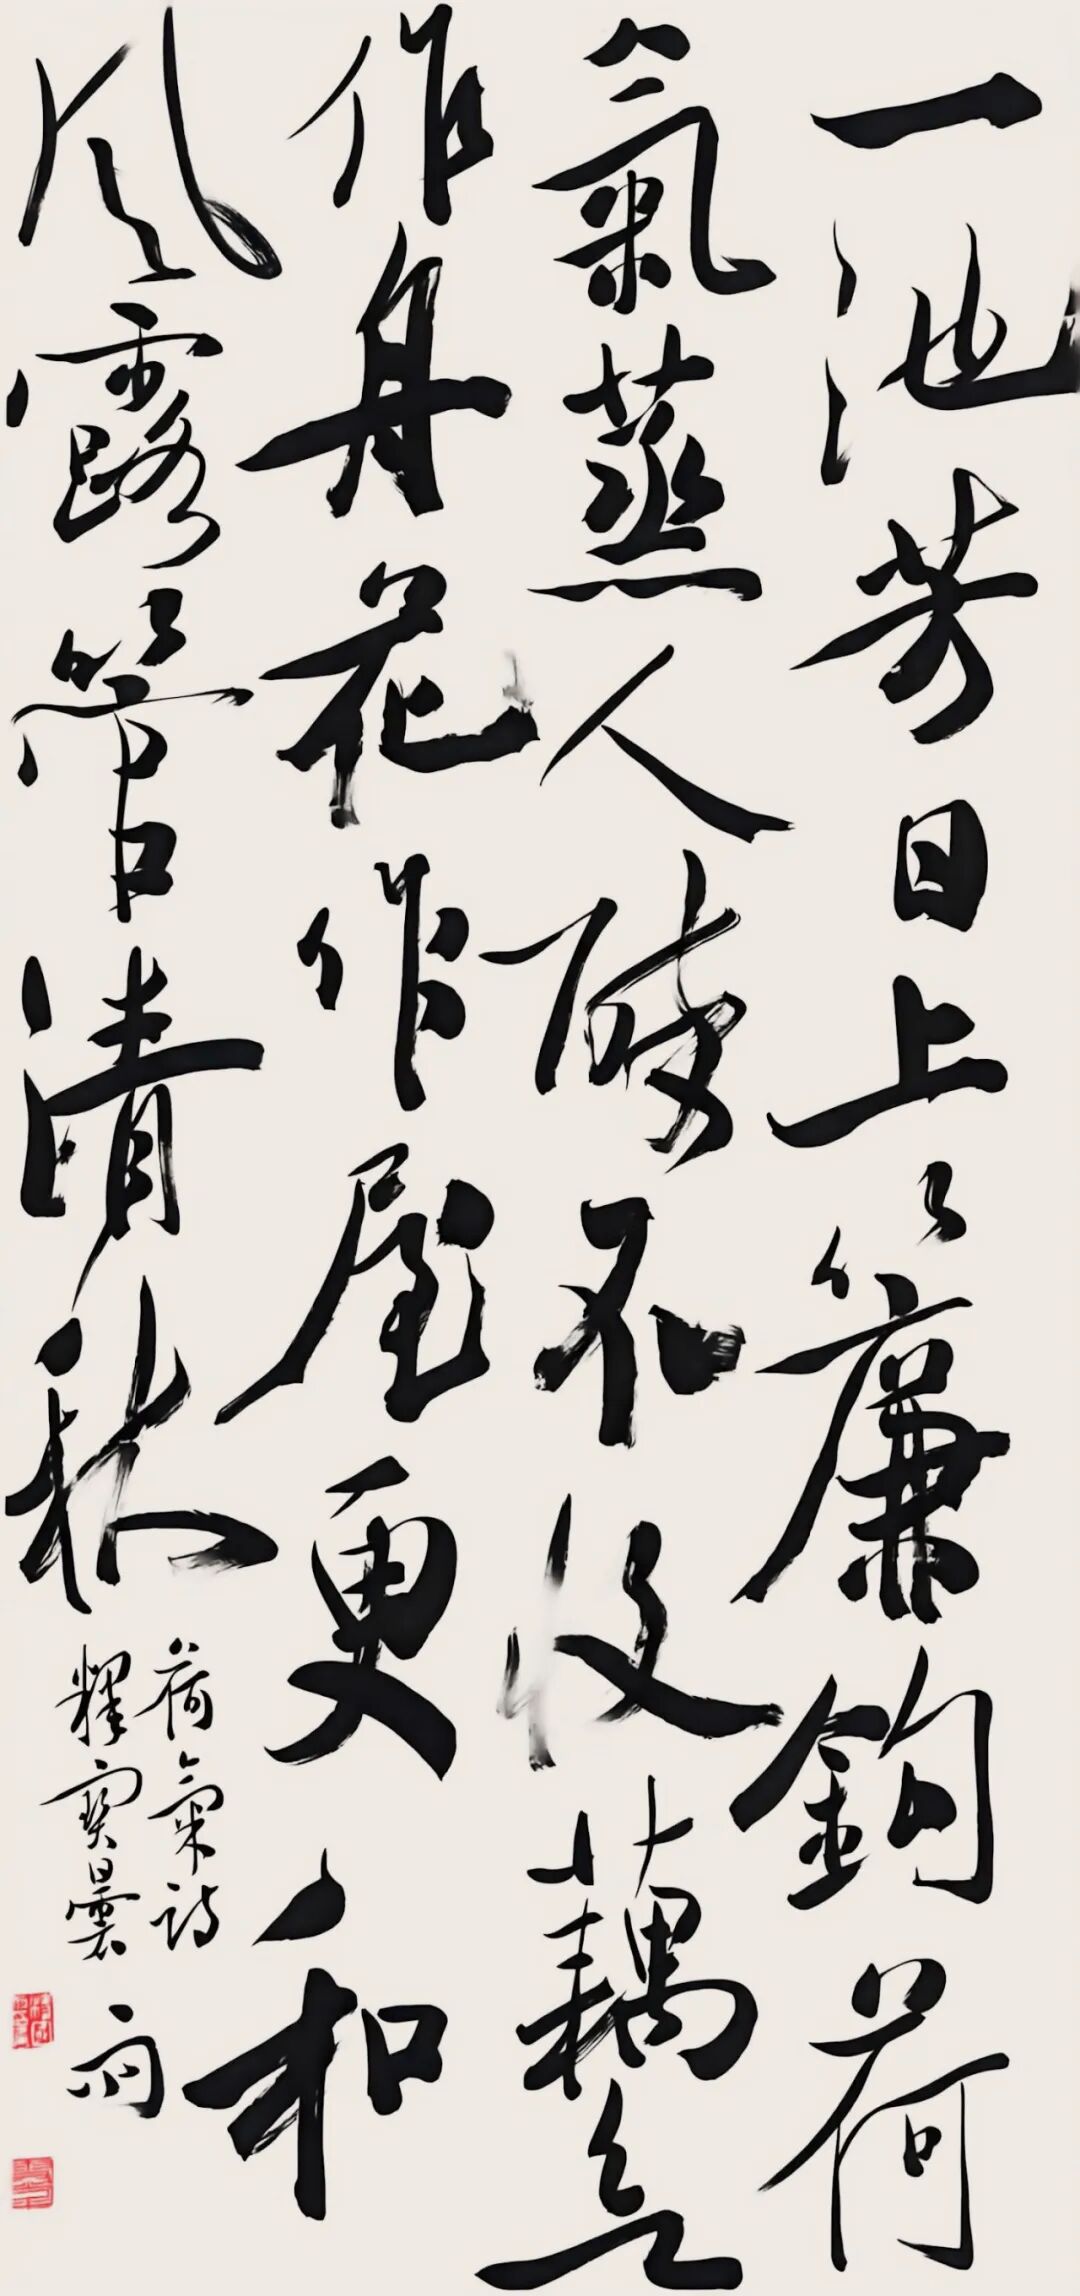 一池芳日上簾鉤荷
氣蒸人醉不收藕葉
作舟花作屋更和
風露管清秋
荷氣詩
釋寶曇